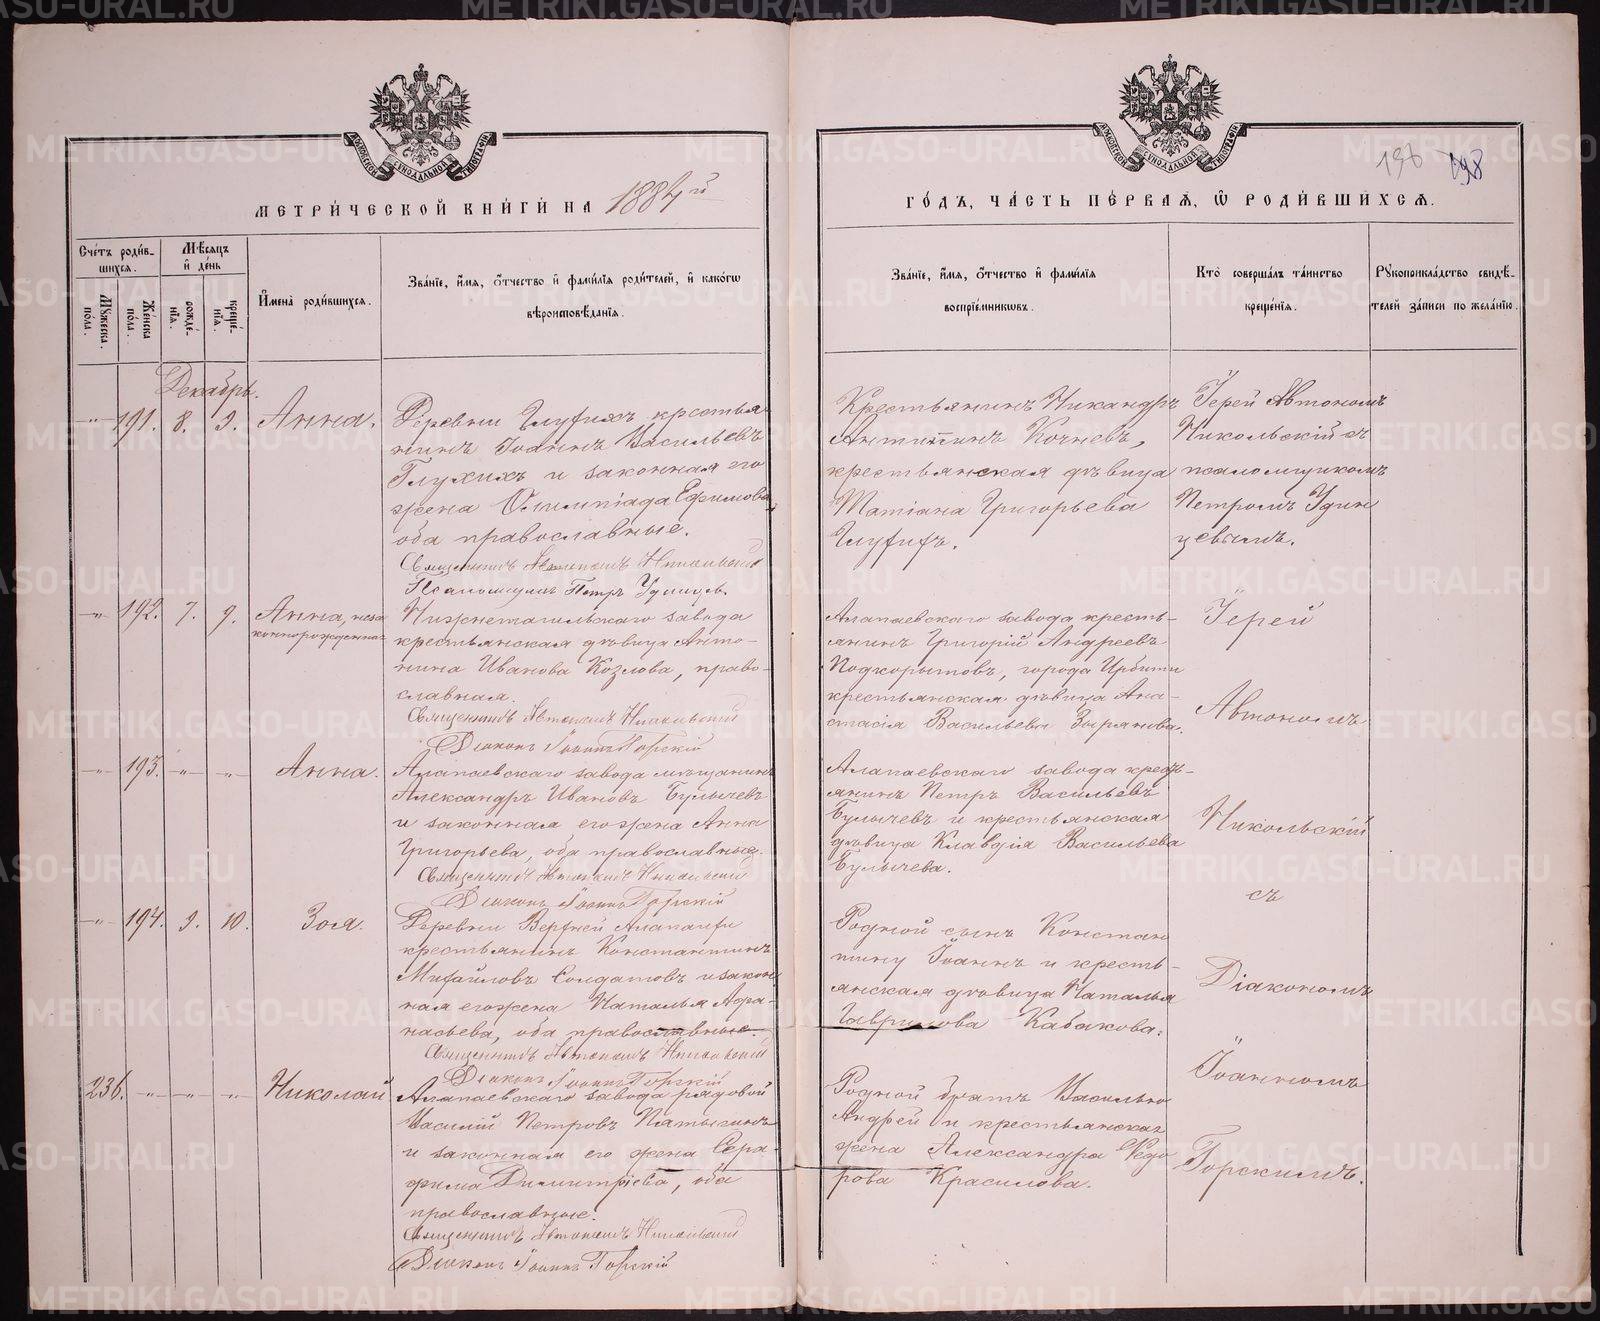 МЕТРИ́ЧЕСКОЙ КНИ́ГИ НА 1884й
ГО́ДЪ, ЧА́СТЬ ПЕ́РВАЯ, Ѿ РОДИ́ВШИХСЯ.
198
Сче́тъ роди́в-
шихся.
Мѣ́сяцъ
и҆ де́нь
Му́жеска
по́ла.
Же́нска
по́ла.
рожде́-
нїѧ.
креще́-
нїѧ.
И҆мена̀ роди́вшихся.
Зва́нїе, и҆́мя, ѻ҆́тчество и҆ фами́лїя роди́телей, и҆ како́гѡ
вѣроисповѣ́данїя.
Зва́нїе, и҆́мя, ѻ҆́тчество и҆ фами́лїя
воспрїе́мниковъ.
Кто̀ соверша́лъ та́инство
креще́нїя.
Рꙋкоприкла́дство свидѣ́-
телей за́писи по жела́нїю.
Декабрь.
-"- 191. 8. 9. Анна.
Деревни Глухихъ крестья
нинъ Іоаннъ Васильевъ
Глухихъ и законная его
жена Олимпіада Ефимова,
оба православные.
Священникъ Автономъ Никольскій
Псаломщикъ Петръ Удинцевъ.
Крестьянинъ Никандръ
Антипинъ Кочневъ,
крестьянская дѣвица
Татіана Григорьева
Глухихъ.
Іерей Автономъ
Никольскій съ
псаломщикомъ
Петромъ Удин
цевымъ.
-"- 192. 7. 9. Анна, неза
коннорожденная
Нижнетагильскаго завода
крестьянская дѣвица Анто-
нина Иванова Козлова, право-
славная.
Священникъ Автономъ Никольскій
Діаконъ Іоаннъ Горскій
Алапаевскаго завода кресть-
янинъ Григорій Андреевъ
Подкорытовъ, города Ирбити
крестьянская дѣвица Ана-
стасія Васильева Зырянова.
Іерей
Автономъ
Никольскій
съ
Діакономъ
Іоанномъ
Горскимъ.
-"- 193. -"- -"- Анна.
Алапаевскаго завода мѣщанинъ
Александръ Ивановъ Булычевъ
и законная его жена Анна
Григорьева, оба православные.
Священникъ Автономъ Никольскій
Діаконъ Іоаннъ Горскій
Алапаевскаго завода кресть-
янинъ Петръ Васильевъ
Булычевъ и крестьянская
дѣвица Клавдія Васильева
Булычева.
-"- 194. 9. 10. Зоя.
Деревни Верхней Алапаихи
крестьянинъ Константинъ
Михайловъ Солдатовъ и закон
ная его жена Наталья Афа-
насьева, оба православные.
Священникъ Автономъ Никольскій
Діаконъ Іоаннъ Горскій
Родной сынъ Констан
тину Іоаннъ и кресть-
янская дѣвица Наталья
Гаврилова Кабакова.
236. -"- -"- -"- Николай
Алапаевскаго завода рядовой
Василій Петровъ Пятыгинъ
и законная его жена Сера-
фима Димитріева, оба
православные.
Священникъ Автономъ Никольскій
Діаконъ Іоаннъ Горскій
Родной братъ Василью
Андрей и крестьянская
жена Александра Ѳедо
рова Красилова.
METRIKI.GASO-URAL.RU